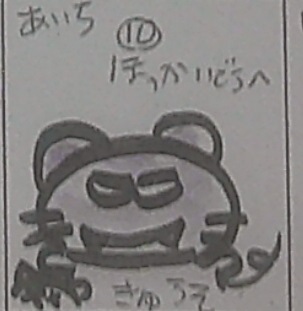 あいち
⑩
ほっかいどうへ
きゅうそ